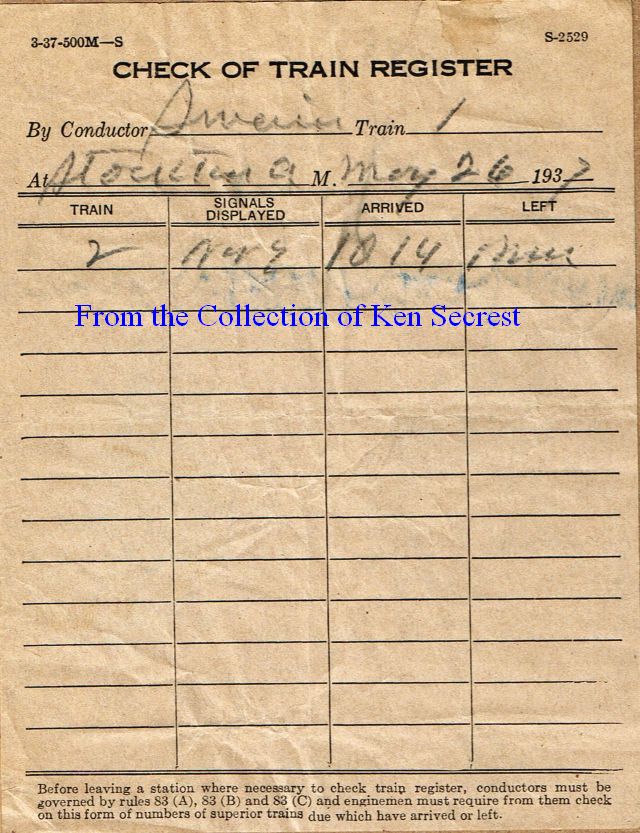 3-37-500M—S S-2529
CHECK OF TRAIN REGISTER
By Conductor Swain Train 1
At Stockton A M. May 26 1937
TRAIN SIGNALS DISPLAYED ARRIVED LEFT
2 1014
From the Collection of Ken Secrest
Before leaving a station where necessary to check train register, conductors must be
governed by rules 83 (A), 83 (B) and 83 (C) and enginemen must require from them check
on this form of numbers of superior trains due which have arrived or left.